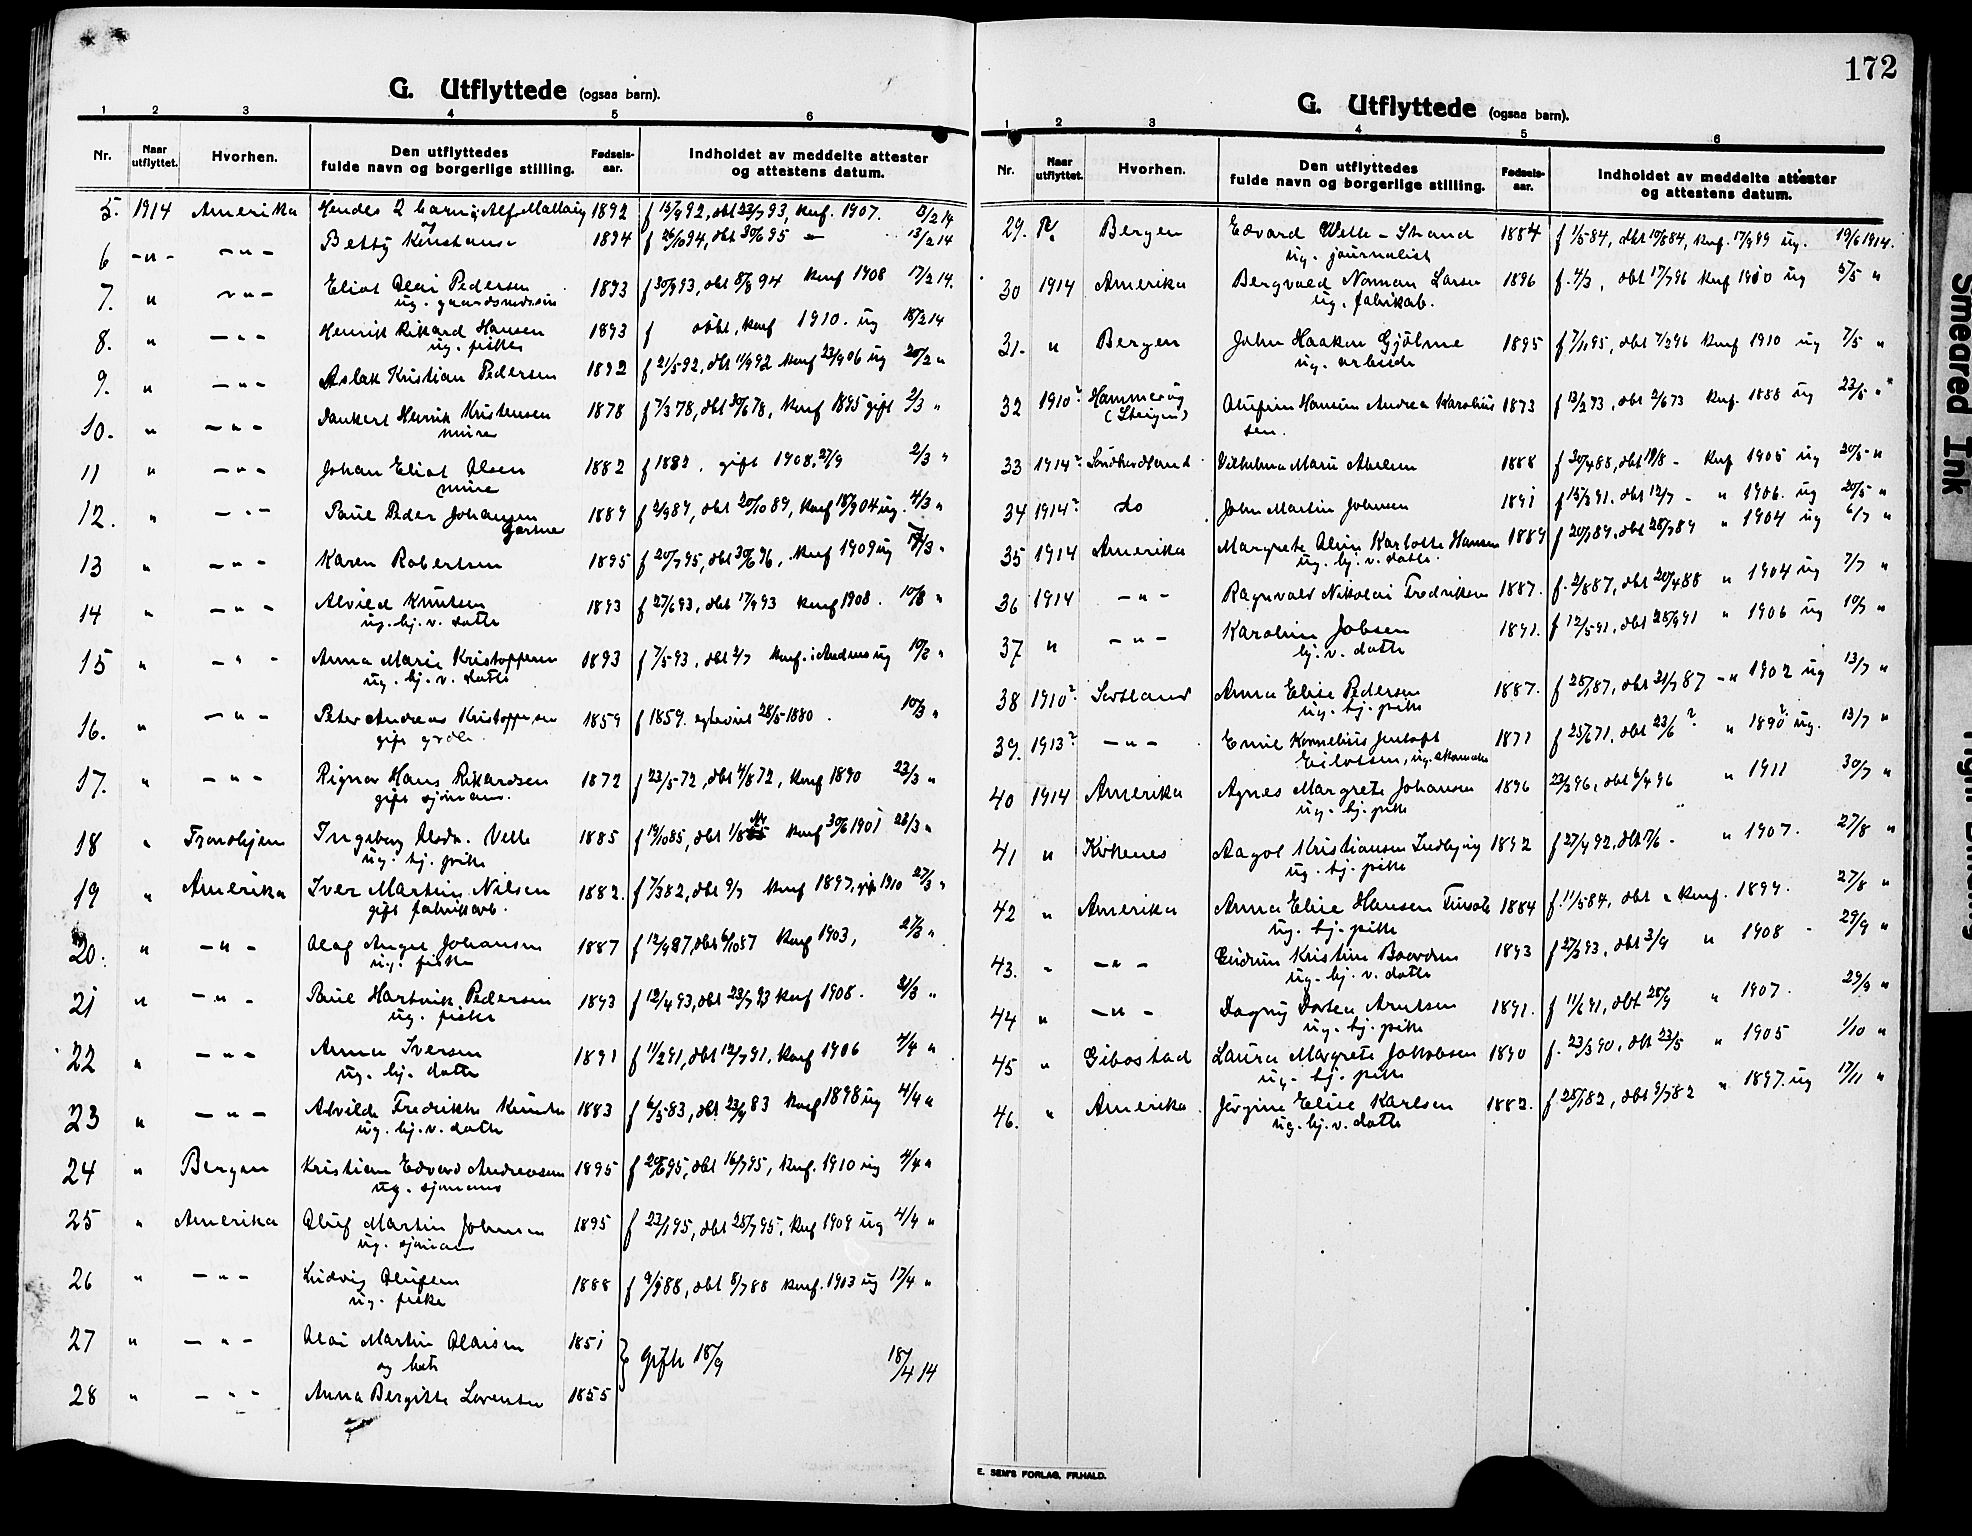 172
G. Utflyttede (ogsaa barn).
1 2 3 4 5 6
Nr. Naar utflyttet. Hvorhen. Den utflyttedes fulde navn og borgerlige stilling. Fødsels-aar. Indholdet av meddelte attester og attestens datum.
5. 1914 Amerika Hendes 2 barn: Alf 1892 f 15/9 92, dbt 23/7 93, Knf. 1907. 13/2 14
og
6 -"- -"- Betty Konstanse 1894 f 26/10 94, dbt 30/6 95 - 13/2 14
7. " -"- Eliot Olai Pedersen 1893 f 30/9 93, dbt 8/8 94 Knf 1908 17/2 14.
ug.
8. " -"- Henrik Rikard Hansen 1893 f dbt, Knf 1910. ug 18/2 14
ug. fisker
9. " -"- Aslak Kristian Pedersen 1892 f 21/5 92, dbt 11/9 92 Knf 23/9 06 ug 20/2 "
10. " -"- Dankert Henrik Kristensen 1878 f 7/3 78, dbt 30/6 78, Knf 1895 gift 2/3 "
11 " -"- Johan Eliot Olsen 1882 f 1882. gift 1908. 27/9 2/3 "
12. " -"- Paul Peder Johansen 1889 f 2/9 89, dbt 20/10 89, Knf 18/9 04 ug. 4/3 "
13 " -"- Karen Robertsen 1895 f 20/7 95, dbt 30/6 96, Knf 1909 ug /3 "
14 " -"- Alvild Knutsen 1893 f 27/6 93, dbt 17/9 93 Knf 1908. 10/3 "
ug. hj. v. datter
15 " -"- Anna Marie Kristoffersen 1893 f 7/5 93, dbt 2/7 Knf. i ug 10/3 "
ug. hj. v. datter
16. " -"- Peter Andreas Kristoffersen 1859 f 1859. 28/5 1880. 10/3 "
gift
17. " -"- Rignor Hans Rikardsen 1872 f 23/5 72, dbt 4/8 72, Knf 1890 23/3 "
gift sjømand.
18 " Trondhjem Ingeborg Velle 1885 f 19/10 85, dbt 1/8 Knf 30/6 1901 28/3 "
ug. hj. pike
19 " Amerika Iver Martin Nilsen 1882. f 7/3 82, dbt 9/7 Knf 1897, gift 1910 27/3 "
gift fabrikarb.
20. " -"- Olaf Angel Johansen 1887 f 12/9 87, dbt 6/10 87 Knf 1903, 27/3 "
ug. fisker
21 " -"- Paul Hartvik Pedersen 1893 f 12/4 93, dbt 23/7 93 Knf 1908. 21/3 "
ug. fisker
22 " -"- Anna Iversen 1891 f 11/2 91, dbt 12/7 91, Knf 1906 4/4 "
ug. hj. datter
23 " -"- Alvilde Fredrikke 1883 f 6/5 83, dbt 23/9 83 Knf 1898 ug 4/4 "
ug. hj. v. datter
24 " Bergen Kristian Edvard Andreassen 1895 f 20/6 95, dbt 16/7 95, Knf. 1910 ug 4/4 "
ug. sjømand
25 " Amerika Oluf Martin Johnsen 1895 f 23/1 95, dbt 28/7 95, Knf 1909 ug 4/4 "
ug. sjømand
26 " -"- Ludvig Olufsen 1888 f 9/ 88, dbt 8/7 88 Knf. 1903 ug 17/4 "
ug. fisker
27 " -"- Olai Martin Olaisen 1851 } gifte 18/9 18/4 14
og
28 " -"- Anna Bergitte Lorentsen 1855
G. Utflyttede (ogsaa barn).
1 2 3 4 5 6
Nr. Naar utflyttet. Hvorhen. Den utflyttedes fulde navn og borgerlige stilling. Fødsels-aar. Indholdet av meddelte attester og attestens datum.
29. Bergen Edvard Welle-Strand 1884 f 1/5 84, dbt 10/8 84, Knf. 17/9 99 ug. 19/6 1914.
ug. journalist
30 1914 Amerika Bergvald Norman Larsen 1896 f. 4/3, dbt 17/7 96 Knf 1910 ug 5/5 "
ug. fabrikab.
31. " Bergen John Haakon Gjölme 1895 f 7/11 95, dbt 7/2 96 Knf 1910 ug 7/5 "
ug. arbeider
32 1910? Hammerøy Olufine Hansine Andrea Karolius 1873 f 13/2 73, dbt 2/6 73 Knf. 1888 ug 23/5 "
(Steigen) sen.
33 1914? Vilhelma Marie 1888 f 30/4 88, dbt 19/8 - Knf 1905 ug 20/5 "
34 1914? do John Martin Johnsen 1891 f 15/3 91. dbt 12/7 - " 1906. ug 20/5 "
35 1914 Amerika Margrete Oline Karlotte Hansen 1889 f 20/1 89. dbt 28/7 89 " 1904 ug 6/7 "
ug. hj. v. datter
36 1914 -"- Ragnvald Nikolai Fredriksen 1887. f. 2/8 87, dbt 20/4 88 " 1904 ug 7/7 "
37 " -"- Karoline Jobsen 1891. f 12/5 91, dbt 28/9 91 " 1906 ug 10/7 "
hj. v. datter
38 1910? Sortland Anna Elise Pedersen 1887. f 28/1 87, dbt 31/7 87 -" 1902 ug 13/7 "
ug. hj. pike
39. 1913? -"- Emil Kornelius Jentoft 1871 f 25/6 71, dbt 23/6 ? " 1890? ug. 13/7 "
Eilotsen, ug.
40 1914 Amerika Agnes Margrete Johansen 1896 23/3 96, dbt 6/4 96 " 1911 30/7 "
ug. hj. pike
41 " Kirkenes Aagot Kristiansen 1892 f 27/4 92, dbt /6 - " 1907. 27/8 "
ug. hj. pike
42 " Amerika Anna Elise Hansen 1884 f. 11/5 84, dbt " Knf. 1899. 27/8 "
ug. hj. pike
43. " -"- Gudrun Kristine 1893 f 27/3 93, dbt 3/9 " 1908 - 29/9 "
ug. hj. v. datter
44 " -"- Dagny Dortea Arntsen 1891. f 11/6 91, dbt 28/9 " 1907. 29/9 "
ug. hj. pike
45 " Gibostad Laura Margrete Jakobsen 1890 f. 23/3 90, dbt 23/5 " 1905 1/10 "
ug. hj. pike
46. " Amerika. Jørgine Elise Karlsen 1882. f 28/1 82, dbt 9/7 82 " 1897. ug 17/11 "
ug. hj. v. datter
E. SEM'S FORLAG, FR.HALD.
Smeared Ink
Tight Binding